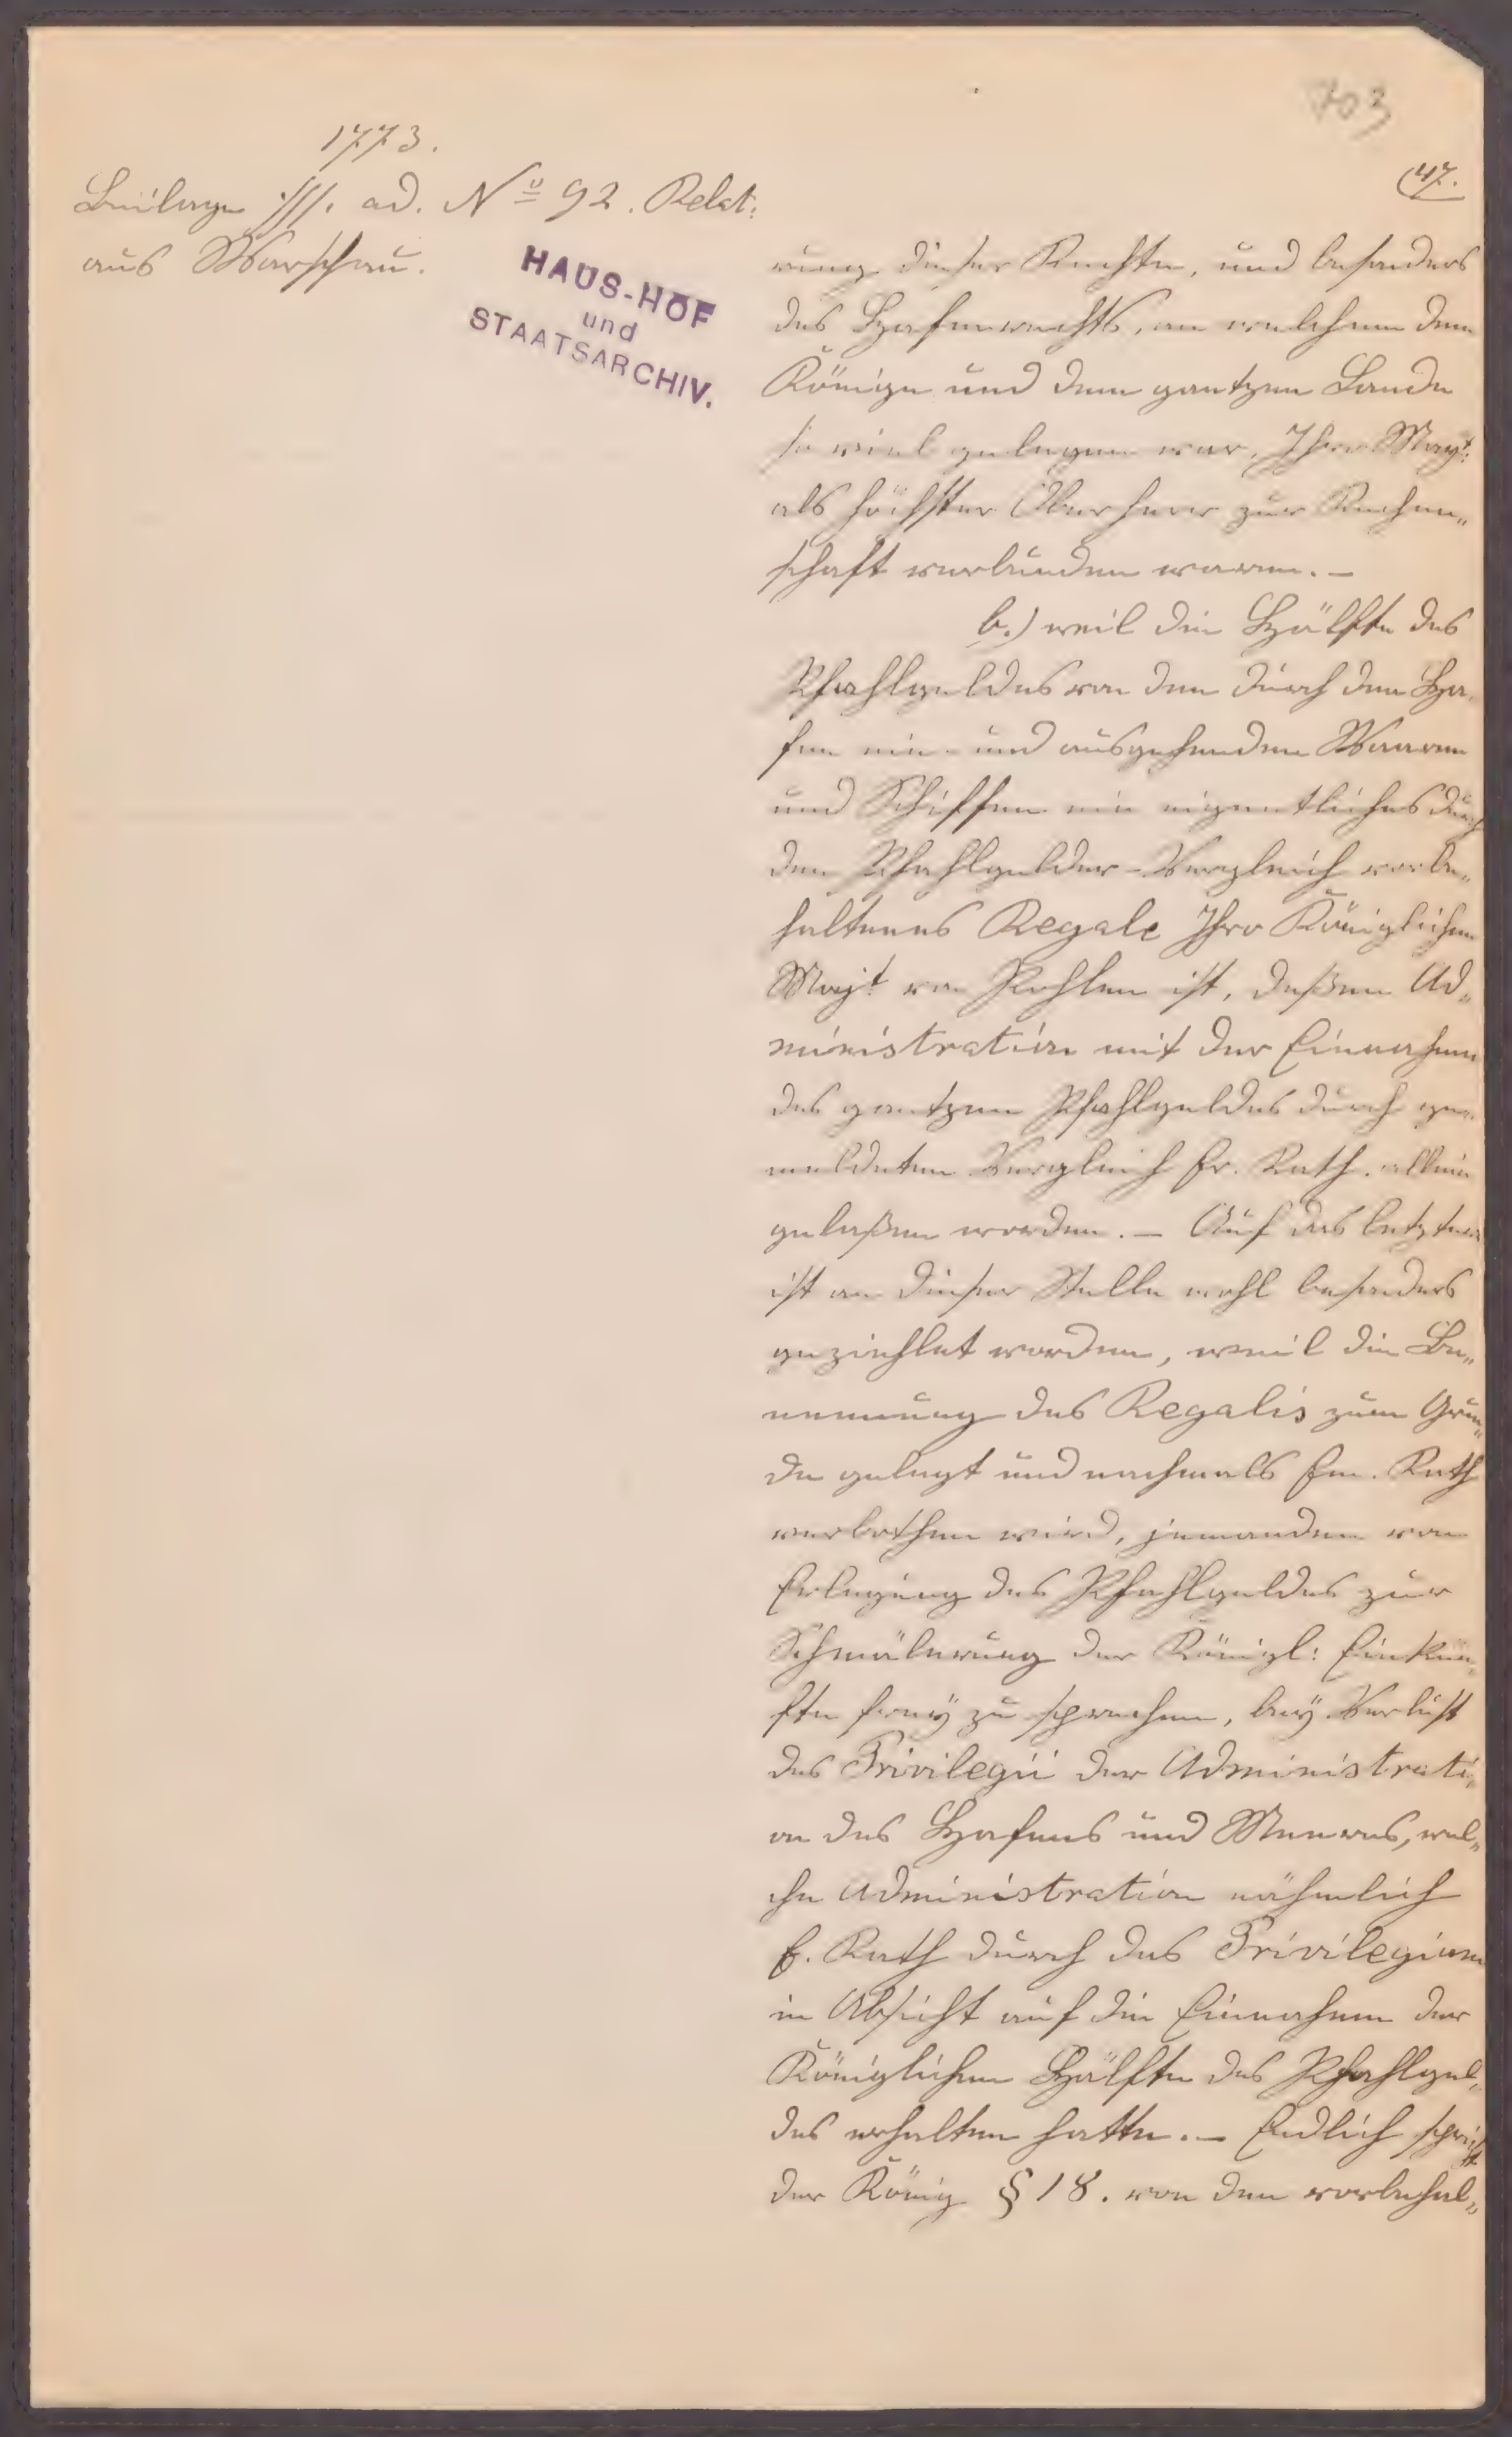 703
1773.
47.
Beilage ad. No 92. Relat:
aus Warschau.
HAUS-HOF
und
STAATSARCHIV.
rung dieser Rechte, und besonders
des Hafenrechts, an welchem dem
Könige und dem gantzen Lande
so viel gelegen war, Ihro Mayt:
als höchster Oberherr zur Rechen„
schaft verbunden waren. –
b.) weil die Hälfte des
Pfahlgeldes von den durch den Ha„
fen ein- und ausgehenden Waaren
und Schiffen ein eigentliches durch
den Pfahlgelder-Vergleich vorbe„
haltenes Regale Ihro Königlichen
Majt von Pohlen ist, deßen Ad„
ministration mit der Einnahme
des gantzen Pfahlgeldes durch ge„
meldeten Vergleich Er. Rath. allein
gelaßen worden. – Auf das letztere
ist an dieser Stelle wohl besonders
geziehlet worden, weil die Be„
nennung des Regalis zum Grun„
de gelegt und nachmals Em. Rath
verbothen wird, jemanden von
Erlegung des Pfahlgeldes zur
Schmälerung der Königl: Einkün„
fte freÿ zu sprechen, beÿ Verlust
des Privilegii der Administrati„
on des Hafens und Meeres, wel„
che Administration nähmlich
E. Rath durch das Privilegium
in Absicht auf die Einnahme der
Königlichen Hälfte des Pfahlgel„
des erhalten hatte. – Endlich spricht
der König § 18. von den vorbehal„